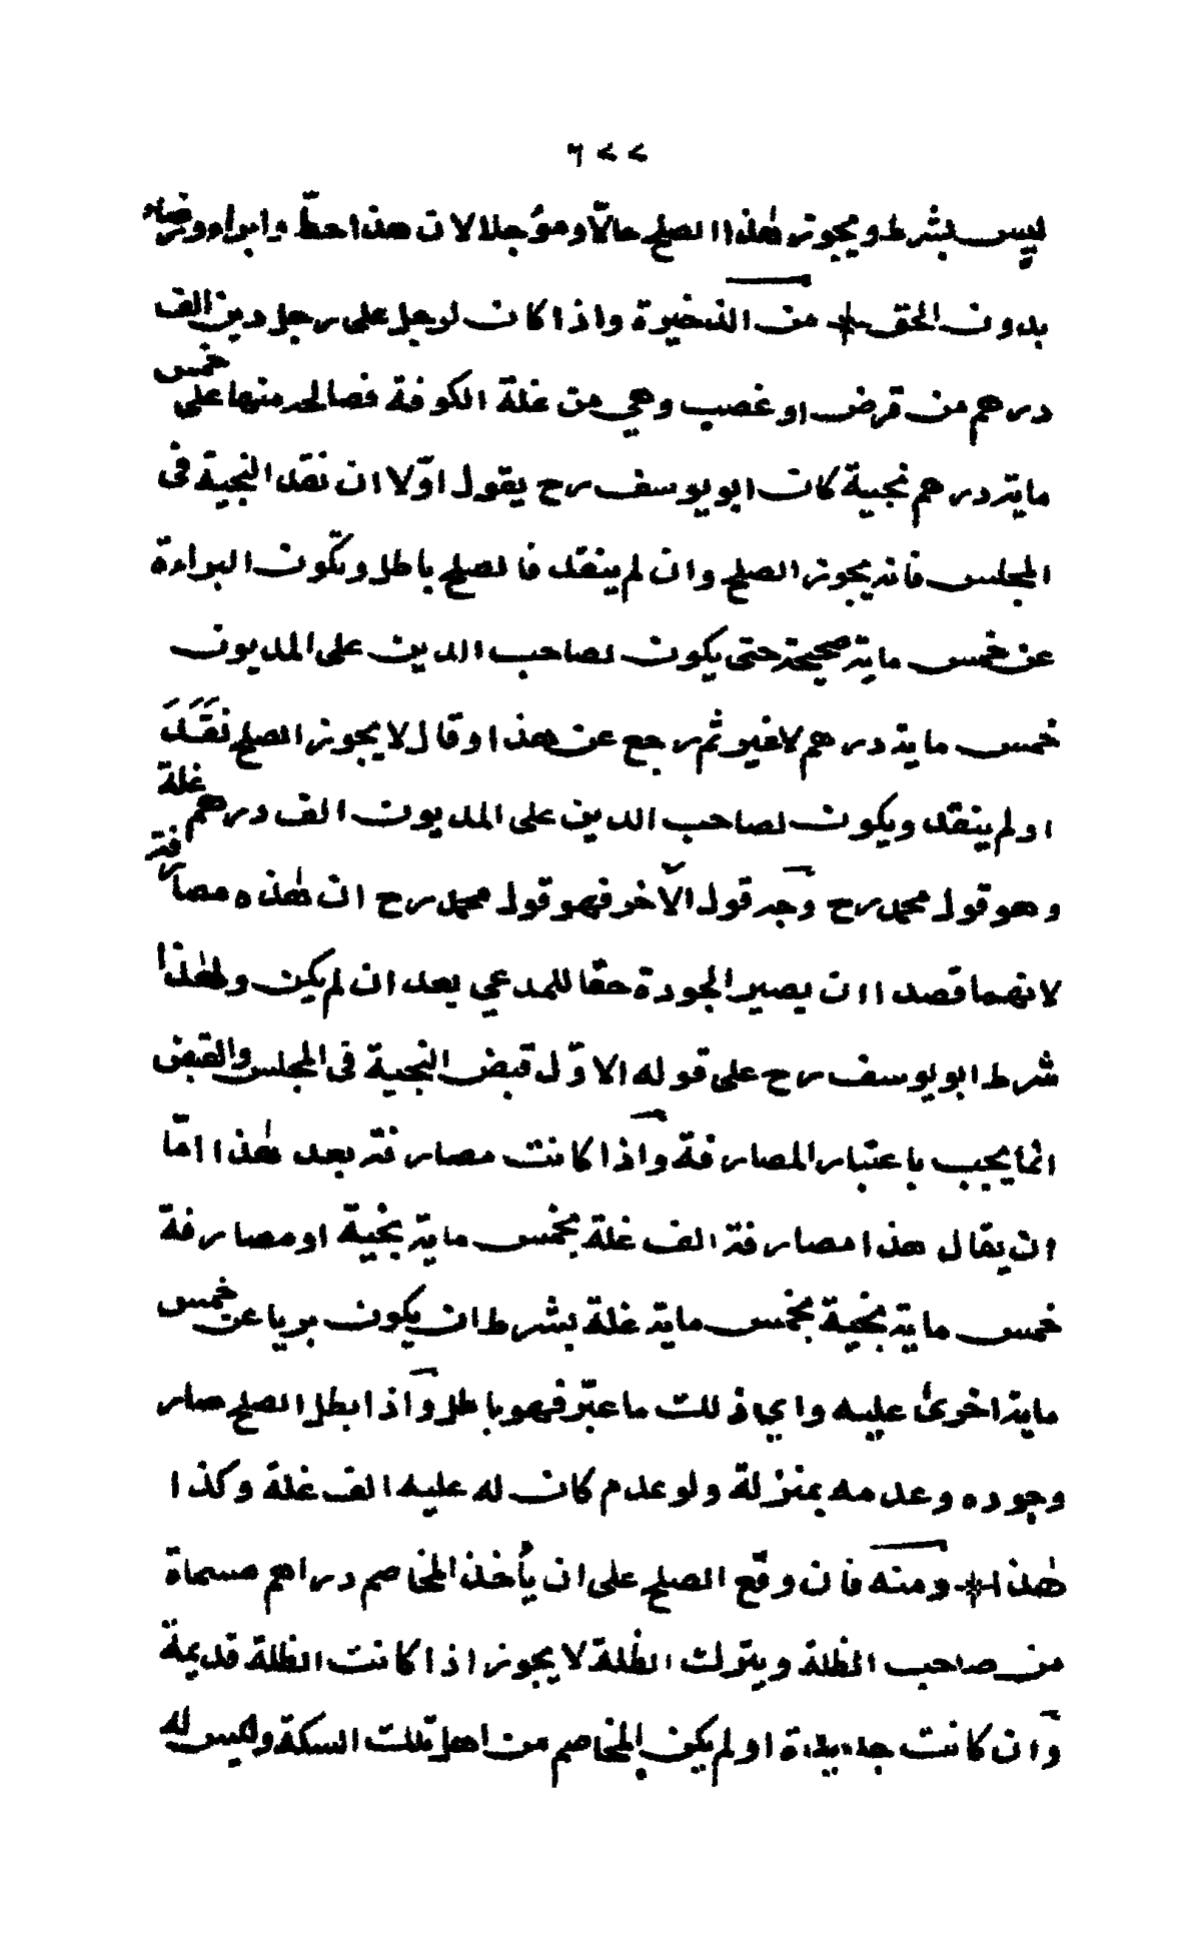 ٦٧٧
ليس بشرط ويجوز هٰذا الصلح حالّا ومؤجلا لان هذا حطّ وابراء ورضاء
بدون الحق * من الذخيرة واذا كان لرجل على رجل دين الف
درهم من قرض او غصب وهي من غلة الكوفة فصالحه منها على خمس
ماية درهم نجية كان ابو يوسف رح يقول اوّلا ان نقد النجية فى
المجلس فانه يجوز الصلح وان لم ينقد فالصلح باطل وتكون البراءة
عن خمس ماية صحيحة حتى يكون لصاحب الدين على المديون
خمس ماية درهم لا غير ثم رجع عن هذا وقال لا يجوز الصلح نَقَدَ
او لم ينقد ويكون لصاحب الدين على المديون الف درهم غلة
وهو قول محمد رح وجه قول الآخر فهو قول محمد رح ان هٰذه مصارفة
لانهما قصدا ان يصير الجودة حقا للمدعي بعد ان لم يكن ولهٰذا
شرط ابو يوسف رح على قوله الاوّل قبض النجية فى المجلس والقبض
انما يجب باعتبار المصارفة واذا كانت مصارفة بعد هٰذا امّا
ان يقال هذا مصارفة الف غلة بخمس ماية نجية او مصارفة
خمس ماية نجية بخمس ماية غلة بشرط ان يكون بريا عن خمس
ماية اخرىٰ عليه واي ذلك ما عبّر فهو باطل واذا بطل الصلح صار
وجوده وعدمه بمنزلة ولو عدم كان له عليه الف غلة وكذا
هٰذا * ومنه فان وقع الصلح على ان يأخذ المخاصم دراهم مسماة
من صاحب الظلة ويترك الظلة لا يجوز اذا كانت الظلة قديمة
وان كانت جديدة او لم يكن المخاصم من اهل تلك السكة وليس له